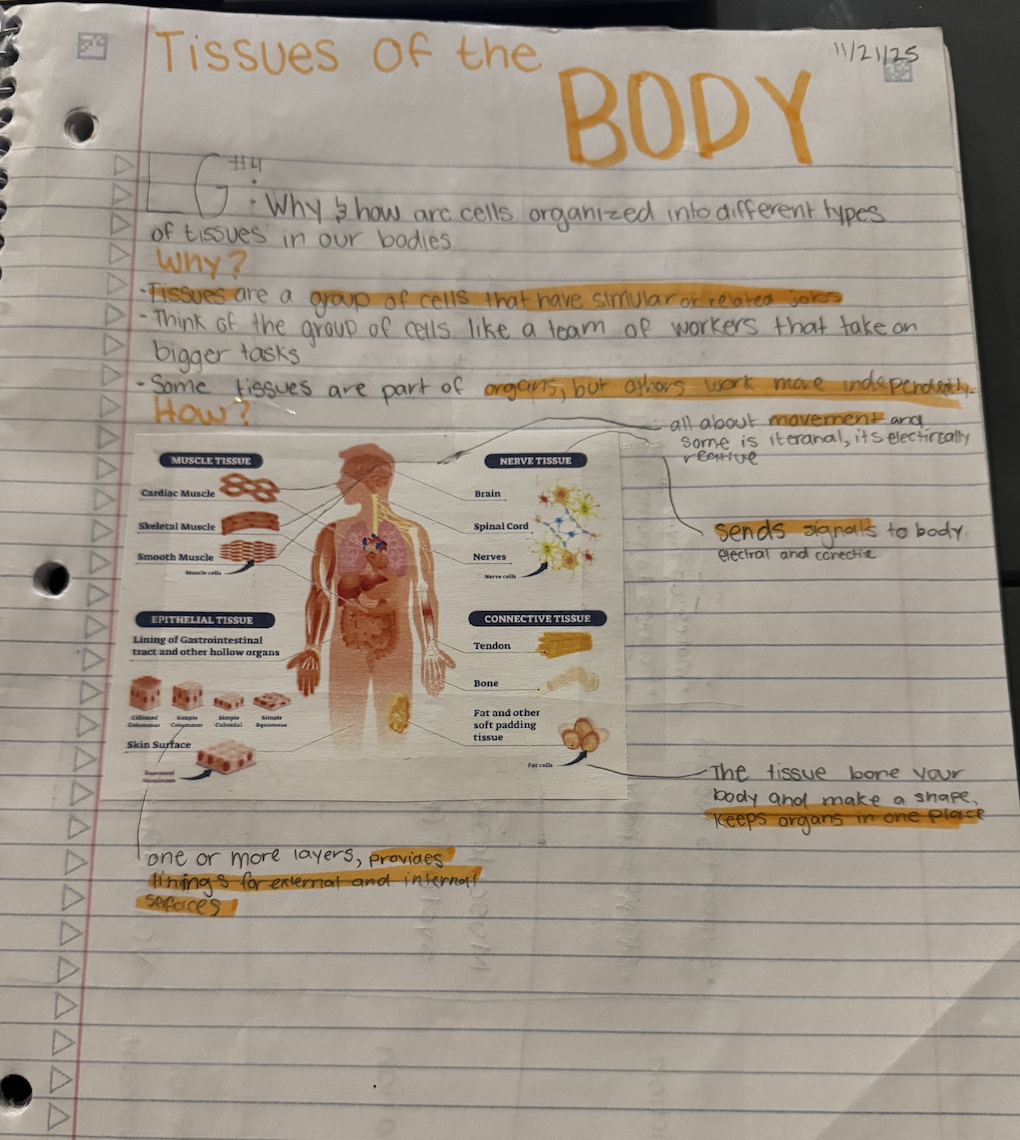 Tissues of the
BODY
11/21/25
LG #4: Why & how are cells organized into different types
of tissues in our bodies
Why?
- Tissues are a group of cells that have simular or related jobs
- Think of the group of cells like a team of workers that take on
bigger tasks
- Some tissues are part of organs, but others work more independently.
How?
all about movement and
some is iteranal, its electircally
reative
sends signals to body
electral and conectie
MUSCLE TISSUE
Cardiac Muscle
Skeletal Muscle
Smooth Muscle
Muscle cells
NERVE TISSUE
Brain
Spinal Cord
Nerves
Nerve cells
EPITHELIAL TISSUE
Lining of Gastrointestinal
tract and other hollow organs
Ciliated
Columnar
Simple
Columnar
Simple
Cuboidal
Simple
Squamous
Skin Surface
Basement
Membrane
CONNECTIVE TISSUE
Tendon
Bone
Fat and other
soft padding
tissue
Fat cells
The tissue bone your
body and make a shape,
keeps organs in one place
one or more layers, provides
linings for external and internal
serfaces